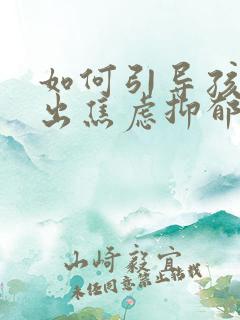 如何引导孩
出焦虑抑郁
山崎毅宜
未经同意禁止转载